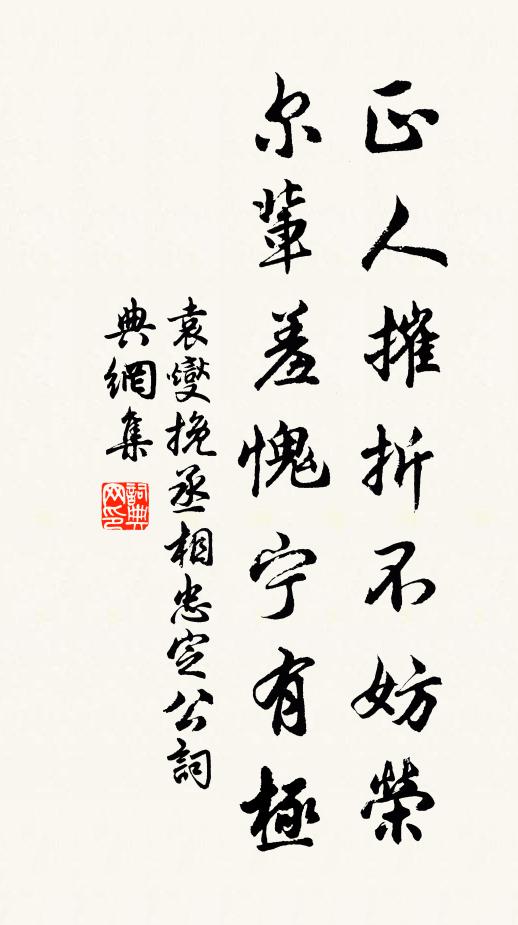 正人摧折不妨榮
尔輩羞愧宁有極
袁燮挽丞相忠定公詞
典網集
詞典
网印